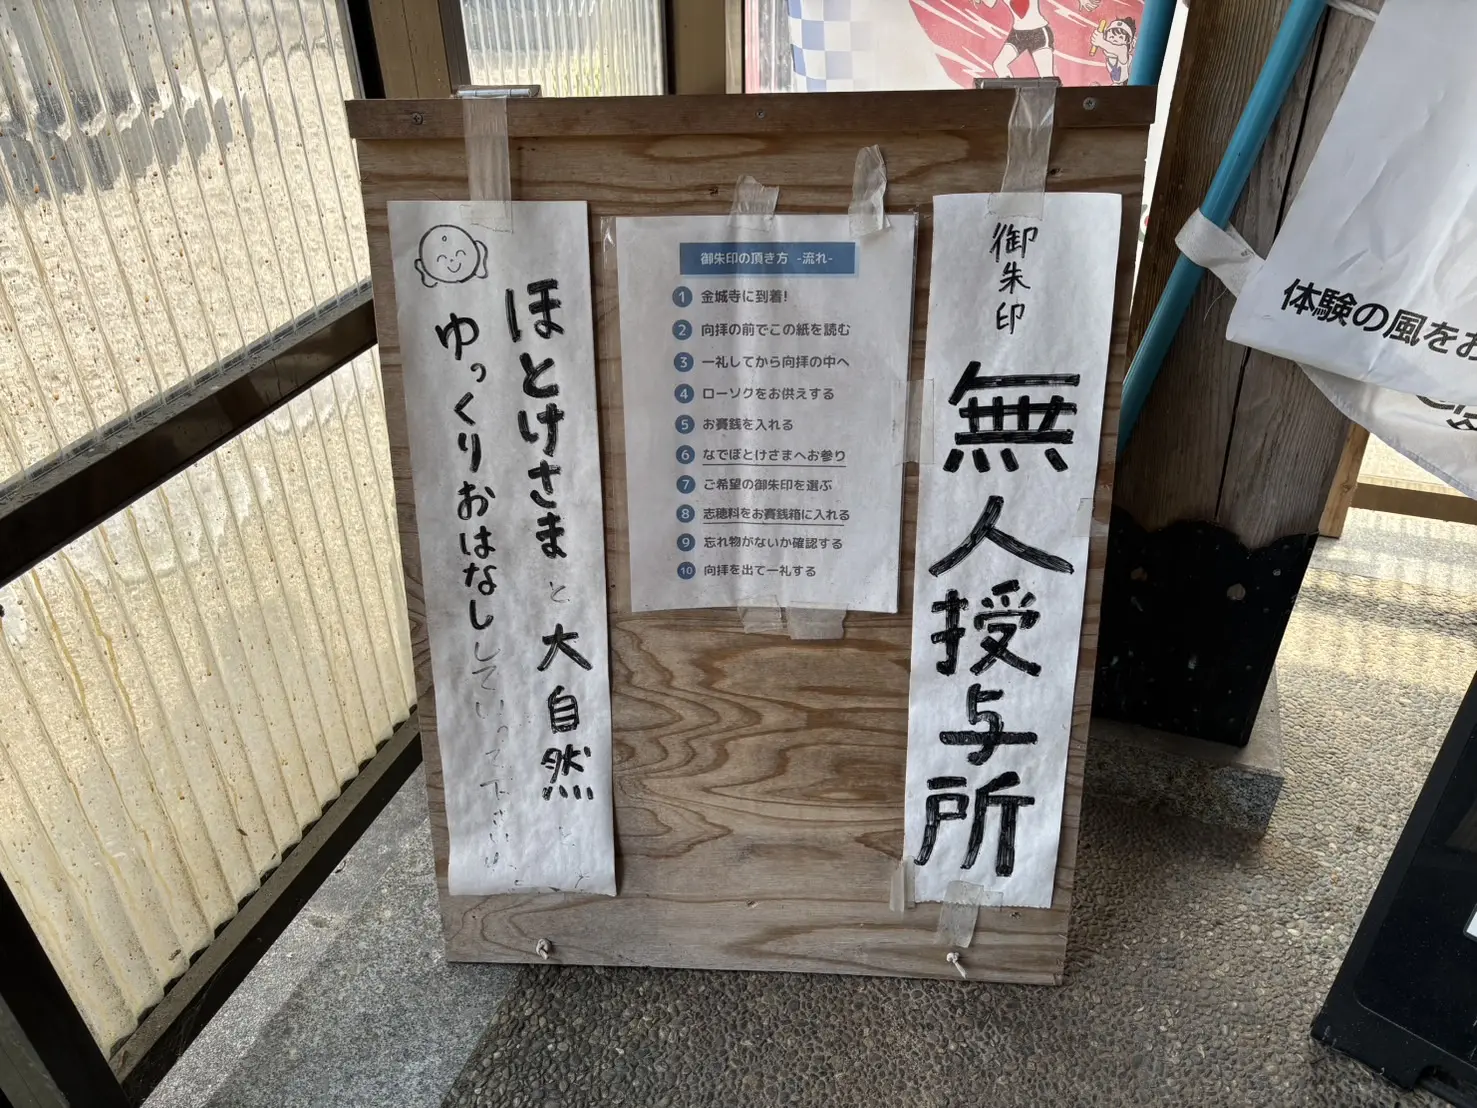 御朱印
無人授与所
御朱印の頂き方 -流れ-
1 金城寺に到着!
2 向拝の前でこの紙を読む
3 一礼してから向拝の中へ
4 ローソクをお供えする
5 お賽銭を入れる
6 なでぼとけさまへお参り
7 ご希望の御朱印を選ぶ
8 志穂料をお賽銭箱に入れる
9 忘れ物がないか確認する
10 向拝を出て一礼する
ほとけさまと大自然と
ゆっくりおはなししていって下さいね
体験の風をお